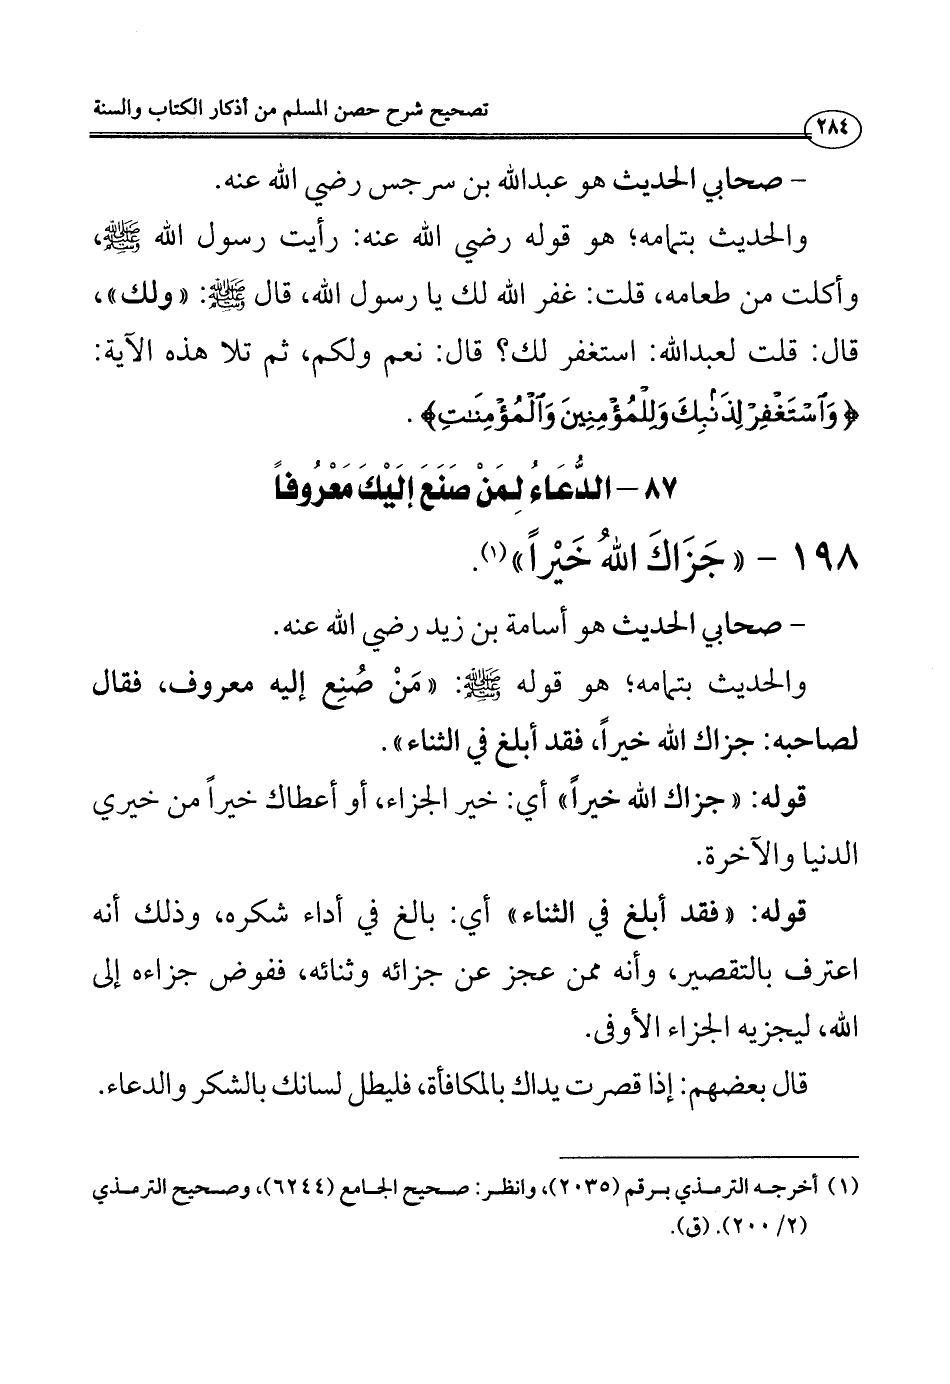 تصحيح شرح حصن المسلم من أذكار الكتاب والسنة
٢٨٤
- صحابي الحديث هو عبدالله بن سرجس رضي الله عنه.
والحديث بتمامه؛ هو قوله رضي الله عنه: رأيت رسول الله ﷺ،
وأكلت من طعامه، قلت: غفر الله لك يا رسول الله، قال ﷺ: «ولك»،
قال: قلت لعبدالله: استغفر لك؟ قال: نعم ولكم، ثم تلا هذه الآية:
﴿وَٱسْتَغْفِرْ لِذَنۢبِكَ وَلِلْمُؤْمِنِينَ وَٱلْمُؤْمِنَٰتِ﴾.
٨٧ - الدُّعَاءُ لِمَنْ صَنَعَ إِلَيْكَ مَعْرُوفاً
١٩٨ - «جَزَاكَ اللهُ خَيْراً»(١).
- صحابي الحديث هو أسامة بن زيد رضي الله عنه.
والحديث بتمامه؛ هو قوله ﷺ: «مَنْ صُنِع إليه معروف، فقال
لصاحبه: جزاك الله خيراً، فقد أبلغ في الثناء».
قوله: «جزاك الله خيراً» أي: خير الجزاء، أو أعطاك خيراً من خيري
الدنيا والآخرة.
قوله: «فقد أبلغ في الثناء» أي: بالغ في أداء شكره، وذلك أنه
اعترف بالتقصير، وأنه ممن عجز عن جزائه وثنائه، ففوض جزاءه إلى
الله، ليجزيه الجزاء الأوفى.
قال بعضهم: إذا قصرت يداك بالمكافأة، فليطل لسانك بالشكر والدعاء.
(١) أخرجه الترمذي برقم (٢٠٣٥)، وانظر: صحيح الجامع (٦٢٤٤)، وصحيح الترمذي
(٢/ ٢٠٠). (ق).